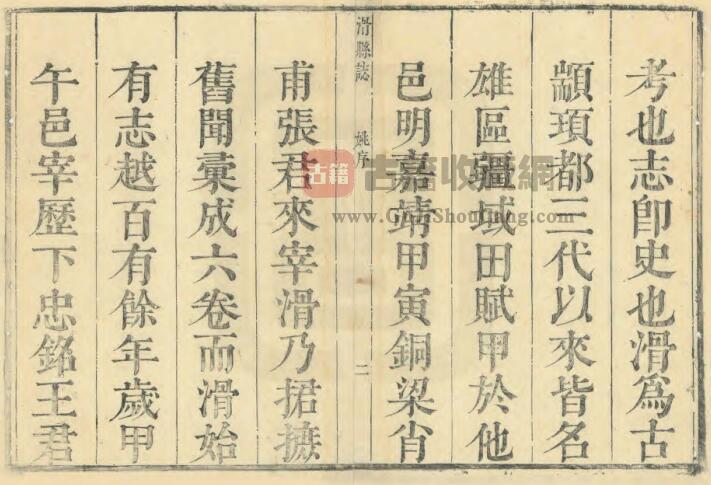 考也志卽史也滑爲古
顓頊都三代以來皆名
雄區疆域田賦甲於他
邑明嘉靖甲寅銅梁肖
滑縣誌 姚序 二
甫張君來宰滑乃捃摭
舊聞彙成六卷而滑始
有志越百有餘年歲甲
午邑宰歷下忠銘王君
古籍 古籍收藏網
www.GuJiShouCang.com